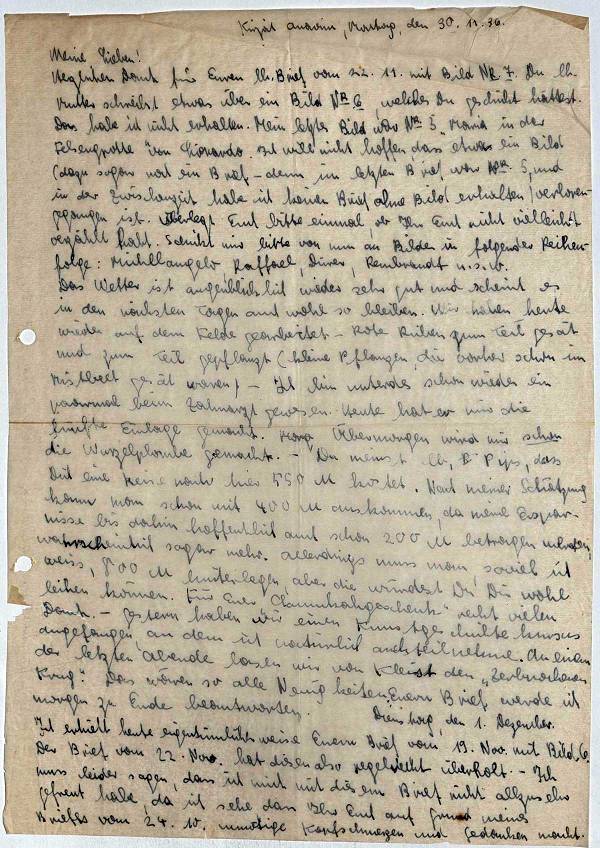 Kirjat Anavim, Montag, den 30.11.36.
Meine Lieben!
Herzlichen Dank für Euren lb. Brief vom 22. 11. mit Bild Nr 7. Du lb.
Mutter schreibst etwas über ein Bild Nr 6, welches Du geschickt hättest.
Das habe ich nicht erhalten. Mein letztes Bild war Nr 5 „Maria in der
Felsengrotte" von Lionardo. Ich will nicht hoffen, dass etwa ein Bild
(dazu sogar noch ein Brief – denn im letzten Brief war Nr. 5, und
in der Zwischenzeit habe ich keinen Brief ohne Bild erhalten) verloren
gegangen ist. Überlegt Euch bitte einmal, ob Ihr Euch nicht vielleicht
verzählt habt. Schickt mir bitte von nun an Bilder in folgender Reihen-
folge: Michelangelo, Raffael, Dürer, Rembrandt u.s.w.
Das Wetter ist augenblicklich wieder sehr gut und scheint es
in den nächsten Tagen auch wohl so bleiben. Wir haben heute
wieder auf dem Felde gearbeitet – Rote Rüben zum Teil gesät
und zum Teil gepflanzt (kleine Pflanzen, die vorher schon im
Mistbeet gesät waren) – Ich bin unterdes schon wieder ein
paarmal beim Zahnarzt gewesen. Heute hat er mir die
fünfte Einlage gemacht. Übermorgen wird mir schon
die Wurzelplombe gemacht. – Du meinst, lb. Pips, dass
Dich eine Reise nach hier 550 M kostet. Nach meiner Schätzung
kann man schon mit 400 M auskommen, da meine Erspar-
nisse bis dahin hoffentlich auch schon 200 M betragen werden,
wahrscheinlich sogar mehr. Allerdings muss man, soviel ich
weiss, 800 M hinterlegen, aber die würdest Du Dir wohl
leihen können. Für Euer „Channukahgeschenk" recht vielen
Dank – Gestern haben wir einen Kunstgeschichtekursus
angefangen, an dem ich natürlich auch teilnehme. An einem
der letzten Abende lasen wir von Kleist den „Zerbrochenen
Krug". Das wären so alle Neuigkeiten. Euern Brief werde ich
morgen zu Ende beantworten. Dienstag, den 1. Dezember.
Ich erhielt heute eigentümlicherweise Euern Brief vom 19. Nov. mit Bild 6.
Der Brief vom 22. Nov. hat diesen also regelrecht überholt. – Ich
muss leider sagen, dass ich mich mit diesem Brief nicht allzusehr
gefreut habe, da ich sehe dass Ihr Euch auf Grund meines
Briefes vom 24. 10. unnötige Kopfschmerzen und Gedanken macht.